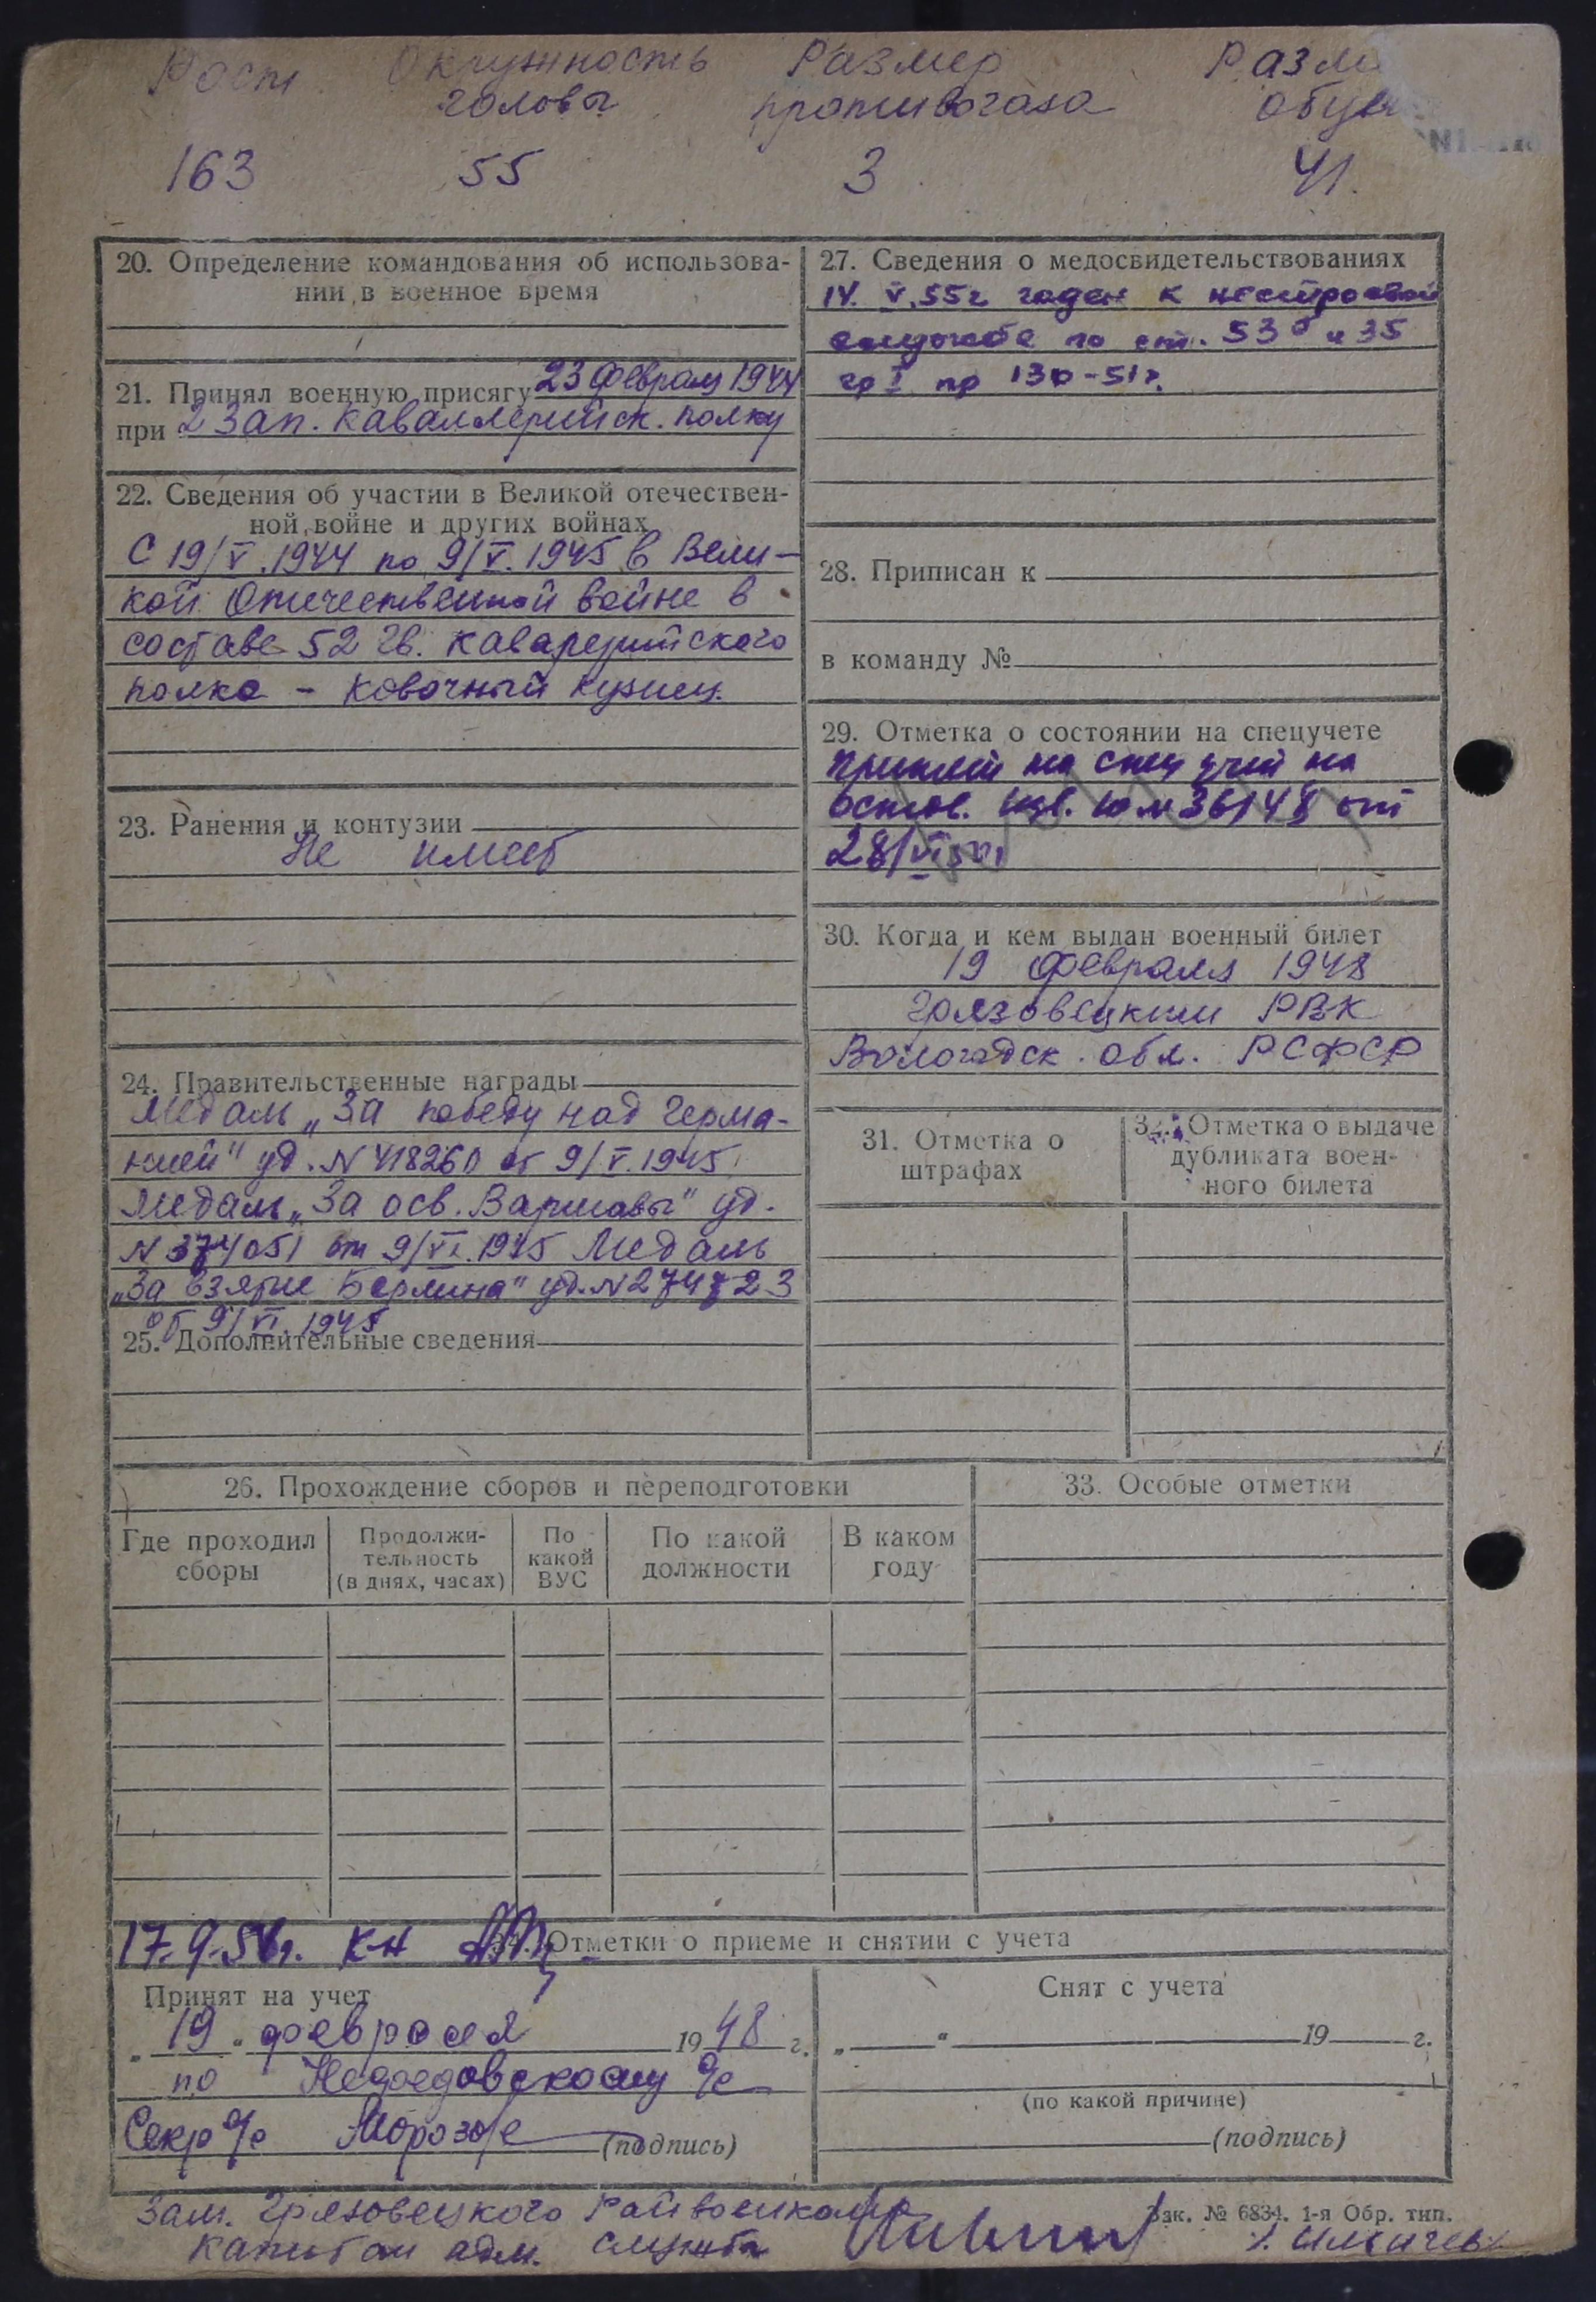 Рост Окружность Размер Разме
головы противогаза обув
163 55 3 41.
20. Определение командования об использова-
нии в военное время
21. Принял военную присягу 23 февраля 1944
при 2 Зап. Каваллерийск. полку
22. Сведения об участии в Великой отечествен-
ной войне и других войнах
С 19/V.1944 по 9/V.1945 в Вели-
кой Отечественной войне в
составе 52 гв. каварерийского
полка - ковочный кузнец.
23. Ранения и контузии
Не имеет
24. Правительственные награды
Медаль „За победу над Герма-
нией" уд. N 418260 от 9/V.1945
Медаль „За осв. Варшавы" уд.
N 374051 от 9/VI.1945 Медаль
„За взятие Берлина" уд. N 274723
от 9/VI.1945
25. Дополнительные сведения
27. Сведения о медосвидетельствованиях
14. V.55г годен к нестроевой
службе по ст. 53б и 35
гр I пр 130-51г.
28. Приписан к
в команду №
29. Отметка о состоянии на спецучете
принят на спец учет на
основ. изв. 36148 от
28/VI
30. Когда и кем выдан военный билет
19 февраля 1948
Грязовецким РВК
Вологодск. обл. РСФСР
31. Отметка о
штрафах
32. Отметка о выдаче
дубликата воен-
ного билета
26. Прохождение сборов и переподготовки
Где проходил
сборы
Продолжи-
тельность
(в днях, часах)
По
какой
ВУС
По какой
должности
В каком
году
33. Особые отметки
17.9.56г. КН Отметки о приеме и снятии с учета
Принят на учет
„ 19 " февраля 1948 г.
по Недоедовскому с/с
Секр с/с Морозов (подпись)
Снят с учета
„ " 19 г.
(по какой причине)
(подпись)
Зам. Грязовецкого Райвоенкома
Капитан адм. службы
Зак. № 6834. 1-я Обр. тип.